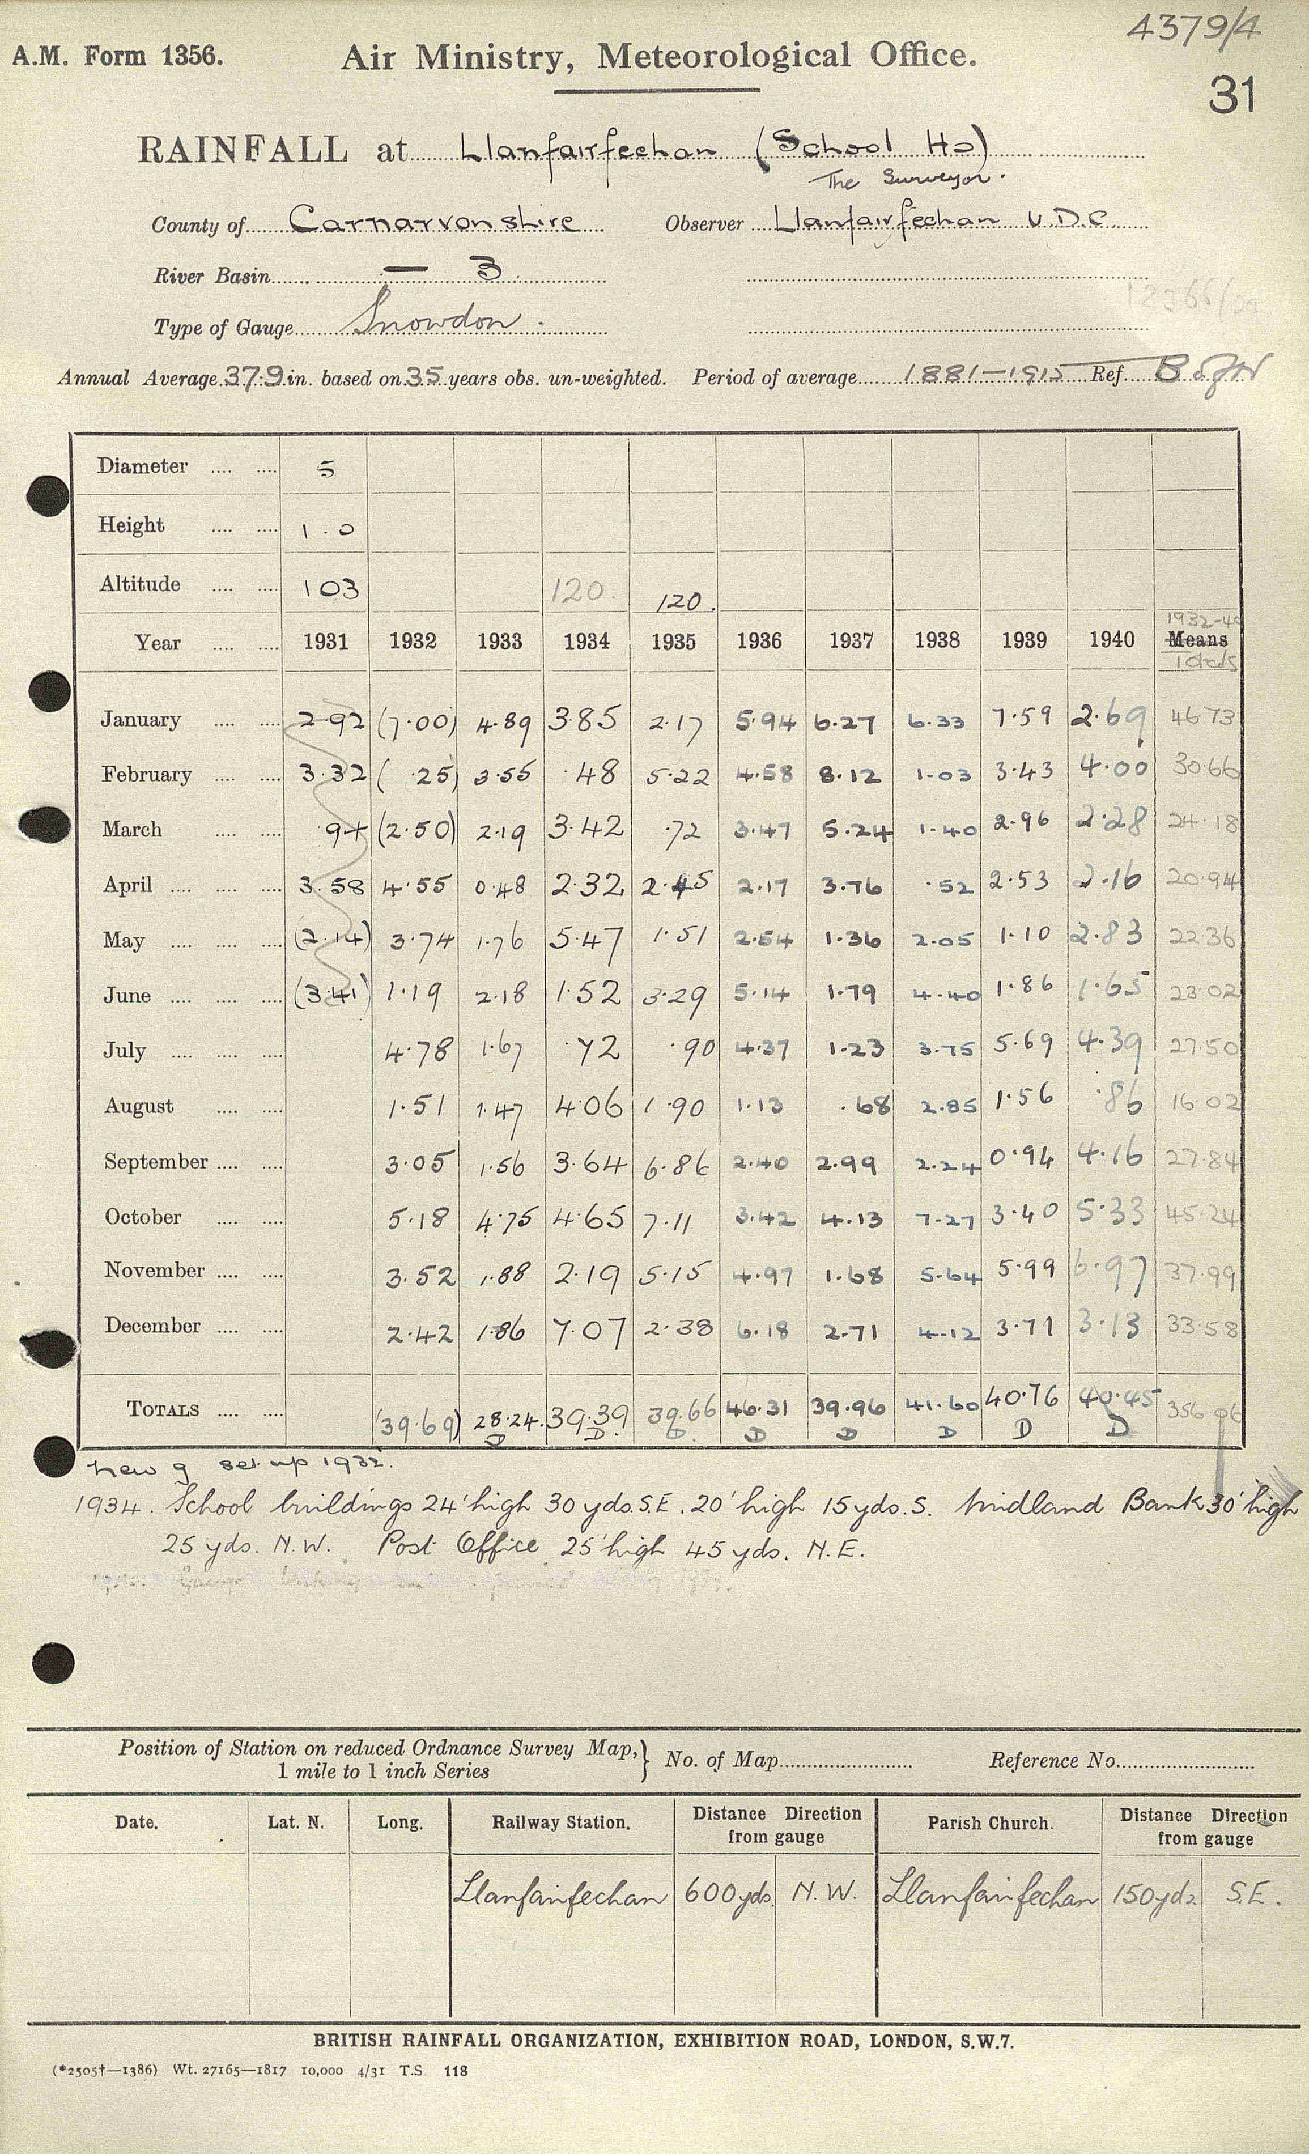 4379/4
A.M. Form 1356. Air Ministry, Meteorological Office.
31
RAINFALL at Llanfairfechan (School Ho)
The Surveyor.
County of Carnarvonshire Observer Llanfairfechan U.D.C.
River Basin — 3
Type of Gauge Snowdon.
Annual Average 37.9 in. based on 35 years obs. un-weighted. Period of average 1881–1915 Ref.
Diameter .... .... 5
Height .... .... 1.0
Altitude .... .... 103 120 120.
1932-40
Year .... .... 1931 1932 1933 1934 1935 1936 1937 1938 1939 1940 Means
Totals
January .... .... 2.92 (7.00) 4.89 3.85 2.17 5.94 6.27 6.33 7.59 2.69 46.73
February .... .... 3.32 ( .25) 3.55 .48 5.22 4.58 8.12 1.03 3.43 4.00 30.66
March .... .... .94 (2.50) 2.19 3.42 .72 3.47 5.24 1.40 2.96 2.28 24.18
April .... .... .... 3.58 4.55 0.48 2.32 2.45 2.17 3.76 .52 2.53 2.16 20.94
May .... .... .... (2.14) 3.74 1.76 5.47 1.51 2.54 1.36 2.05 1.10 2.83 22.36
June .... .... .... (3.41) 1.19 2.18 1.52 3.29 5.14 1.79 4.40 1.86 1.65 23.02
July .... .... .... 4.78 1.67 .72 .90 4.37 1.23 3.75 5.69 4.39 27.50
August .... .... 1.51 1.47 4.06 1.90 1.13 .68 2.85 1.56 .86 16.02
September .... .... 3.05 1.56 3.64 6.86 2.40 2.99 2.24 0.94 4.16 27.84
October .... .... 5.18 4.75 4.65 7.11 3.42 4.13 7.27 3.40 5.33 45.24
November .... .... 3.52 1.88 2.19 5.15 4.97 1.68 5.64 5.99 6.97 37.99
December .... .... 2.42 1.86 7.07 2.38 6.18 2.71 4.12 3.71 3.13 33.58
TOTALS .... .... (39.69) 28.24 39.39 39.66 46.31 39.96 41.60 40.76 40.45 356.06
D D D D D D D D
New g set up 1932.
1934. School buildings 24' high 30 yds. S.E. 20' high 15 yds. S. Midland Bank 30' high
25 yds. N.W. Post Office 25' high 45 yds. N.E.
Position of Station on reduced Ordnance Survey Map, } No. of Map Reference No.
1 mile to 1 inch Series
Date. Lat. N. Long. Railway Station. Distance Direction from gauge Parish Church. Distance Direction from gauge
Llanfairfechan 600 yds. N.W. Llanfairfechan 150 yds. S.E.
BRITISH RAINFALL ORGANIZATION, EXHIBITION ROAD, LONDON, S.W.7.
(*2505†—1386) Wt. 27165—1817 10,000 4/31 T.S. 118